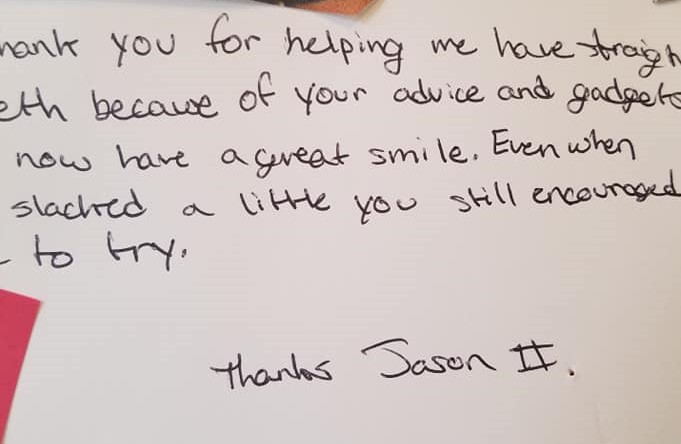 hank you for helping me have straigh
eth because of your advice and gadgets
now have a great smile. Even when
slacked a little you still encouraged
to try.
Thanks Jason II.